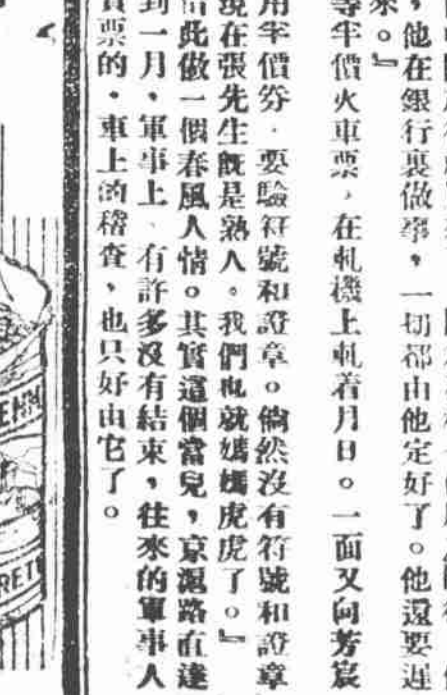 ，他在銀行裏做事，一切都由他定好了。他還要遲
來。』
等半價火車票，在軋機上軋着月日。一面又向芳宸
用半價劵，要驗符號和證章。倘然沒有符號和證章
現在張先生旣是熟人。我們也就媽媽虎虎了。』
借此做一個春風人情。其實這個當兒，京滬路直達
到一月，軍事上，有許多沒有結束，往來的軍事人
買票的，車上的稽查，也只好由它了。
RET